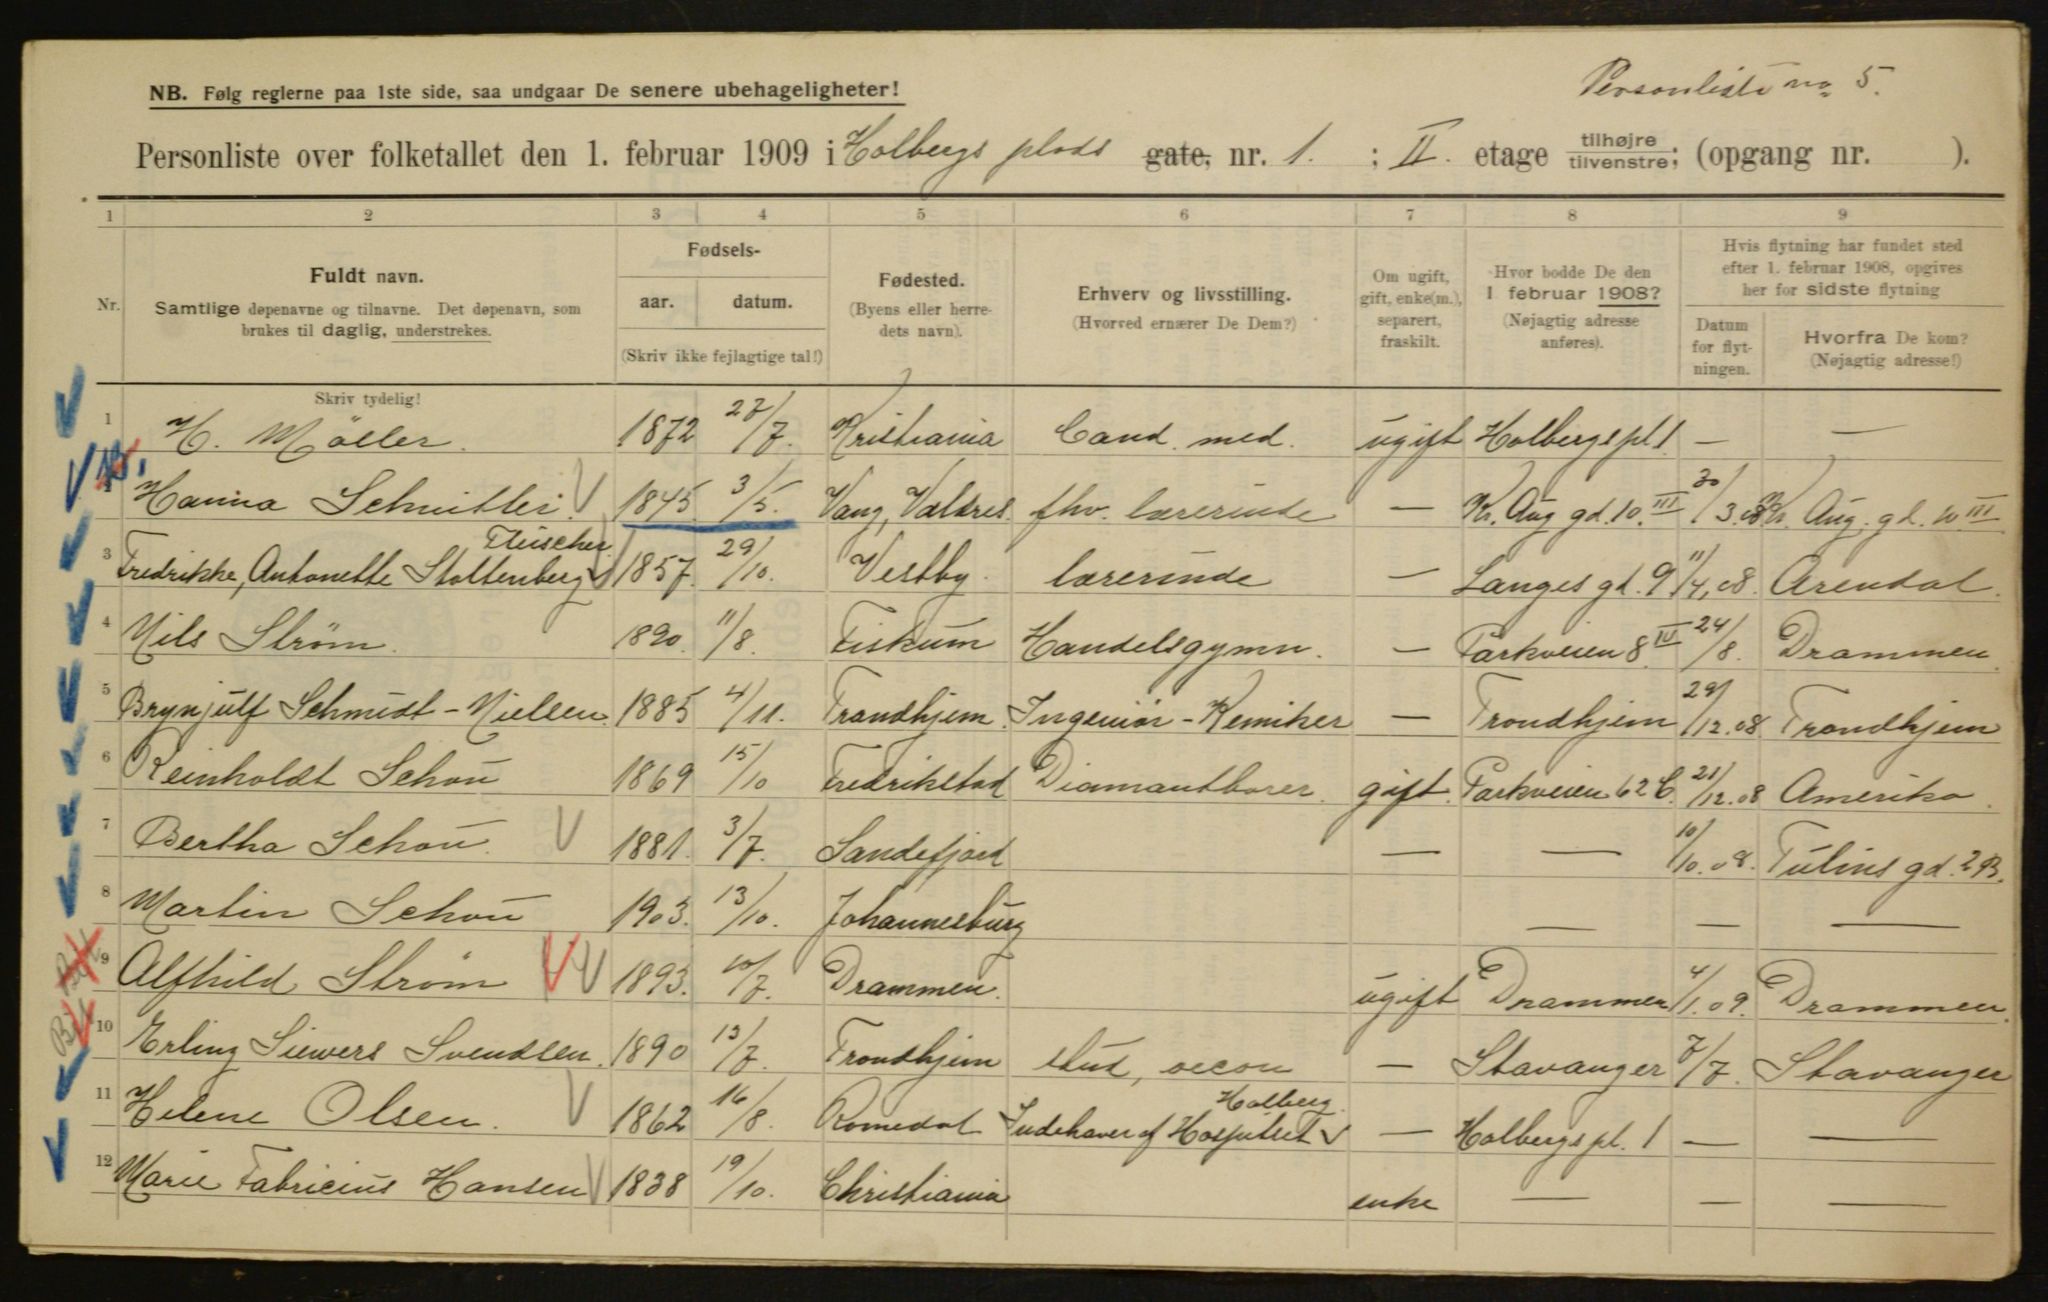 Personliste no 5.
NB. Følg reglerne paa 1ste side, saa undgaar De senere ubehageligheter!
Personliste over folketallet den 1. februar 1909 i Holbergs plads gate, nr. 1. ; II. etage tilhøjre tilvenstre; (opgang nr. ).
1 2 3 4 5 6 7 8 9
Nr.
Fuldt navn.
Samtlige døpenavne og tilnavne. Det døpenavn, som
brukes til daglig, understrekes.
Fødsels-
aar. datum.
(Skriv ikke fejlagtige tal!)
Fødested.
(Byens eller herre-
dets navn).
Erhverv og livsstilling.
(Hvorved ernærer De Dem?)
Om ugift,
gift, enke(m.),
separert,
fraskilt.
Hvor bodde De den
1 februar 1908?
(Nøjagtig adresse
anføres).
Hvis flytning har fundet sted
efter 1. februar 1908, opgives
her for sidste flytning
Datum
for flyt-
ningen.
Hvorfra De kom?
(Nøjagtig adresse!)
Skriv tydelig!
1 H. Möller. 1872 27/7. Kristiania Cand. med. ugift Holbergs pl 1. — —
2 Hanna Schnitler. 1845 3/5. Vang, Valdres. fhv. lærerinde — Kr. Aug gd. 10. III 30/3.08 Kr. Aug. gd. 10 III
Fleischer
3 Fredrikke, Antonette Stoltenberg 1857. 29/10. Vestby. lærerinde — Langes gd. 9 11/4.08. Arendal.
4 Nils Strøm. 1890. 11/8. Fiskum Handelsgymn. — Parkveien 8. IV 24/8. Drammen.
5 Brynjulf Schmidt-Nielsen. 1885 4/11. Trondhjem. Ingeniør-Kemiker — Trondhjem 29/12.08. Trondhjem
6 Reinholdt Schou 1869 15/10 Fredrikstad Diamantborer. gift. Parkveien 62 C. 21/12.08 Amerika.
7 Bertha Schou. 1881. 3/7. Sandefjord — — 10/10.08. Tulins gd. 2 B.
8 Martin Schou 1903. 13/10. Johannesburg — — —
9 Alfhild Strøm 1893. 10/7. Drammen. ugift Drammen 4/1.09. Drammen.
10 Erling Siewers Svendsen. 1890 13/7. Trondhjem stud, oecon — Stavanger 7/7. Stavanger
Holberg.
11 Helene Olsen. 1862 16/8. Romedal Indehaver af Hospitset — Holbergs pl. 1 — —
12 Marie Fabricius Hansen 1838 19/10. Christiania enke — — —